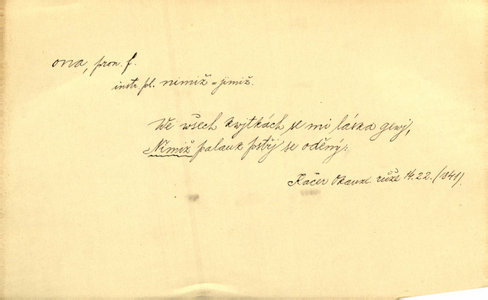 ona, pron. f.
instr. pl. nimiž = jimiž.
We všech kwjtkách se mi láska gewj,
Nimiž palauk se oděný.
Kačer růže 14.22. (1841).